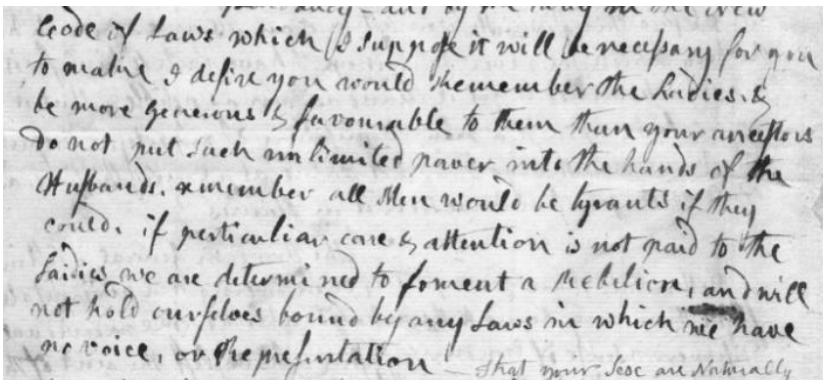 and by the way in the new
Code of Laws which I suppose it will be necessary for you
to make I desire you would Remember the Ladies, &
be more generous & favourable to them than your ancestors
do not put such unlimited power into the hands of the
Husbands. remember all Men would be tyrants if they
could. if perticuliar care & attention is not paid to the
Laidies we are determined to foment a Rebelion, and will
not hold ourselves bound by any Laws in which we have
no voice, or Representation
That your Sex are Naturally